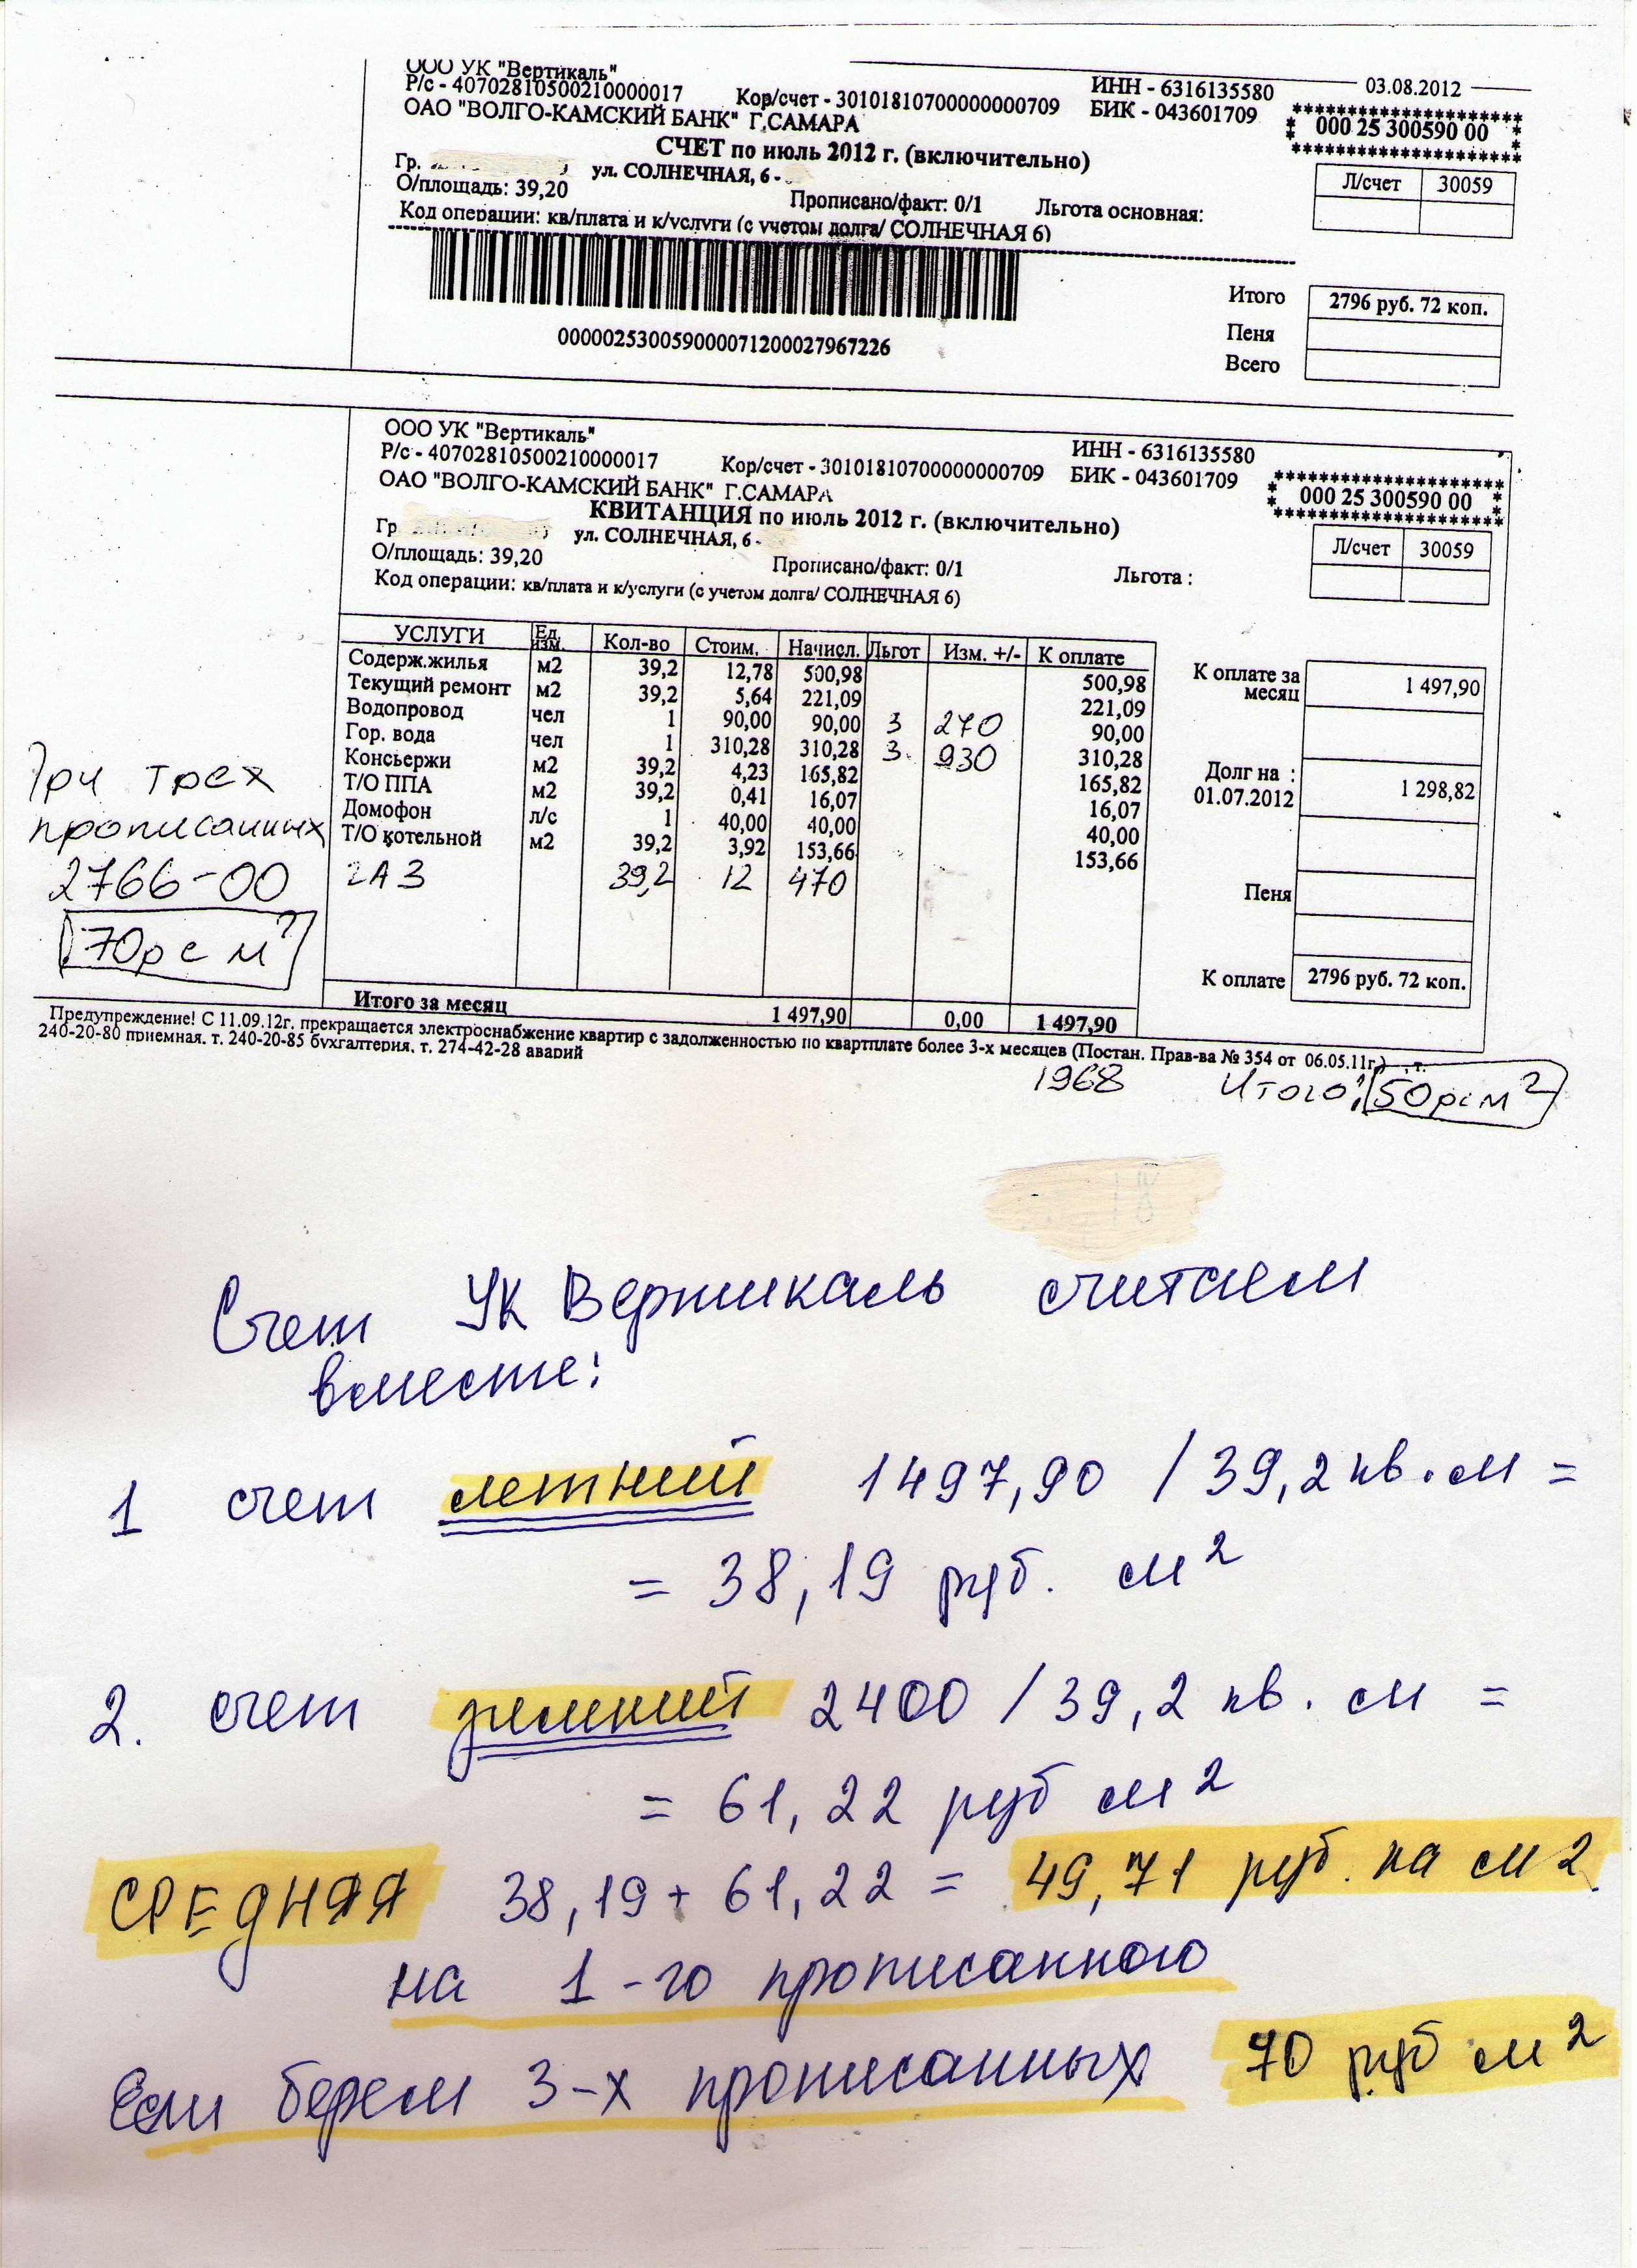 ООО УК "Вертикаль"
Р/с - 40702810500210000017 Кор/счет - 30101810700000000709 ИНН - 6316135580 03.08.2012
ОАО "ВОЛГО-КАМСКИЙ БАНК" Г.САМАРА БИК - 043601709
000 25 300590 00
СЧЕТ по июль 2012 г. (включительно)
Гр. ул. СОЛНЕЧНАЯ, 6 -
О/площадь: 39,20 Прописано/факт: 0/1 Льгота основная:
Л/счет 30059
Код операции: кв/плата и к/услуги (с учетом долга/ СОЛНЕЧНАЯ 6)
Итого 2796 руб. 72 коп.
Пеня
Всего
0000025300590000071200027967226
ООО УК "Вертикаль"
Р/с - 40702810500210000017 Кор/счет - 30101810700000000709 ИНН - 6316135580
ОАО "ВОЛГО-КАМСКИЙ БАНК" Г.САМАРА БИК - 043601709
000 25 300590 00
КВИТАНЦИЯ по июль 2012 г. (включительно)
Гр ул. СОЛНЕЧНАЯ, 6 -
О/площадь: 39,20 Прописано/факт: 0/1 Льгота :
Л/счет 30059
Код операции: кв/плата и к/услуги (с учетом долга/ СОЛНЕЧНАЯ 6)
УСЛУГИ Ед. изм. Кол-во Стоим. Начисл. Льгот Изм. +/- К оплате
Содерж.жилья м2 39,2 12,78 500,98 500,98
Текущий ремонт м2 39,2 5,64 221,09 221,09
Водопровод чел 1 90,00 90,00 3 270 90,00
Гор. вода чел 1 310,28 310,28 3 930 310,28
Консьержи м2 39,2 4,23 165,82 165,82
Т/О ППА м2 39,2 0,41 16,07 16,07
Домофон л/с 1 40,00 40,00 40,00
Т/О котельной м2 39,2 3,92 153,66 153,66
ГАЗ 39,2 12 470
Итого за месяц 1 497,90 0,00 1 497,90
К оплате за месяц 1 497,90
Долг на : 01.07.2012 1 298,82
Пеня
К оплате 2796 руб. 72 коп.
При трех
прописанных
2766-00
70р с м2
Предупреждение! С 11.09.12г. прекращается электроснабжение квартир с задолженностью по квартплате более 3-х месяцев (Постан. Прав-ва № 354 от 06.05.11г.) . т.
240-20-80 приемная. т. 240-20-85 бухгалтерия. т. 274-42-28 аварий
1968 Итого: 50р с м2
Счет УК Вертикаль считаем
вместе:
1 счет летний 1497,90 / 39,2 кв.м =
= 38,19 руб. м2
2. счет зимний 2400 / 39,2 кв. м =
= 61,22 руб м2
СРЕДНЯЯ 38,19 + 61,22 = 49,71 руб. на м2
на 1-го прописанного
Если берем 3-х прописанных 70 руб м2